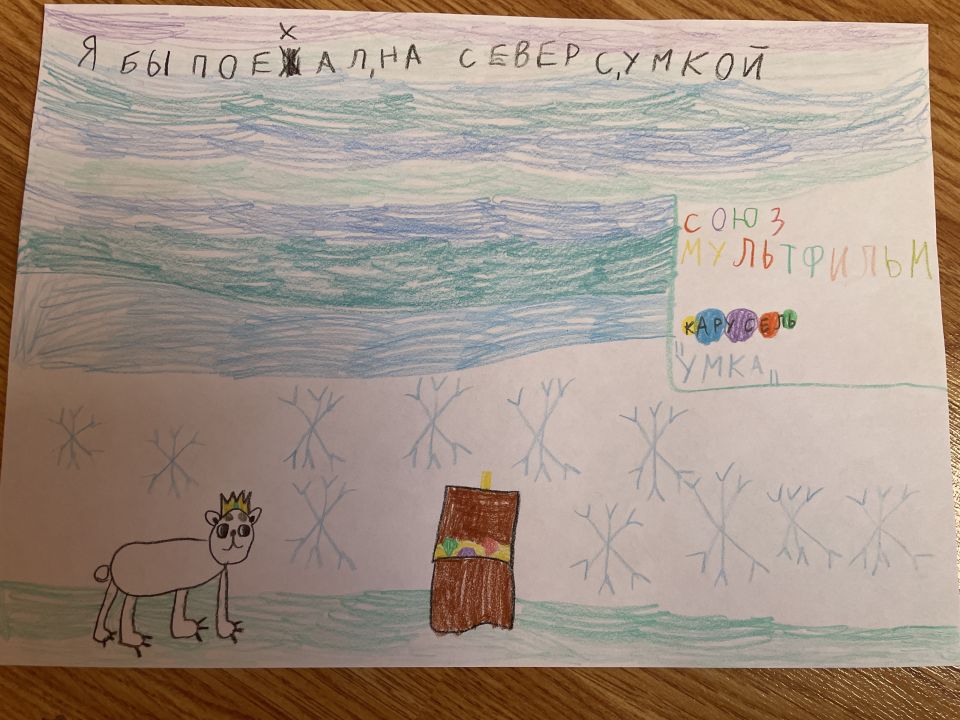 Я БЫ ПОЕХАЛ,НА СЕВЕР С,УМКОЙ
СОЮЗ
МУЛЬТФИЛЬМ
КАРУСЕЛЬ
"УМКА"